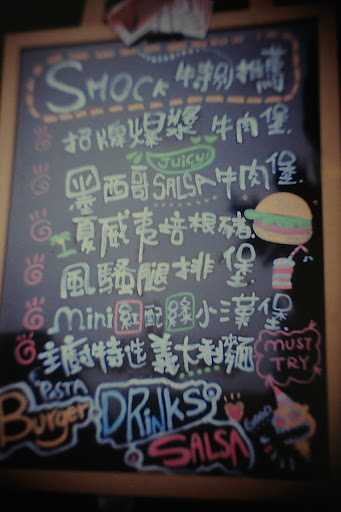 SMOCK 特別推薦
招牌爆漿 牛肉堡
JUICY
墨西哥SALSA牛肉堡
夏威夷培根豬
風騷腿排 堡
mini 紅配綠小漢堡
主廚特性義大利麵
MUST TRY
PASTA
Burger
DRiNKS
SALSA
GOOD